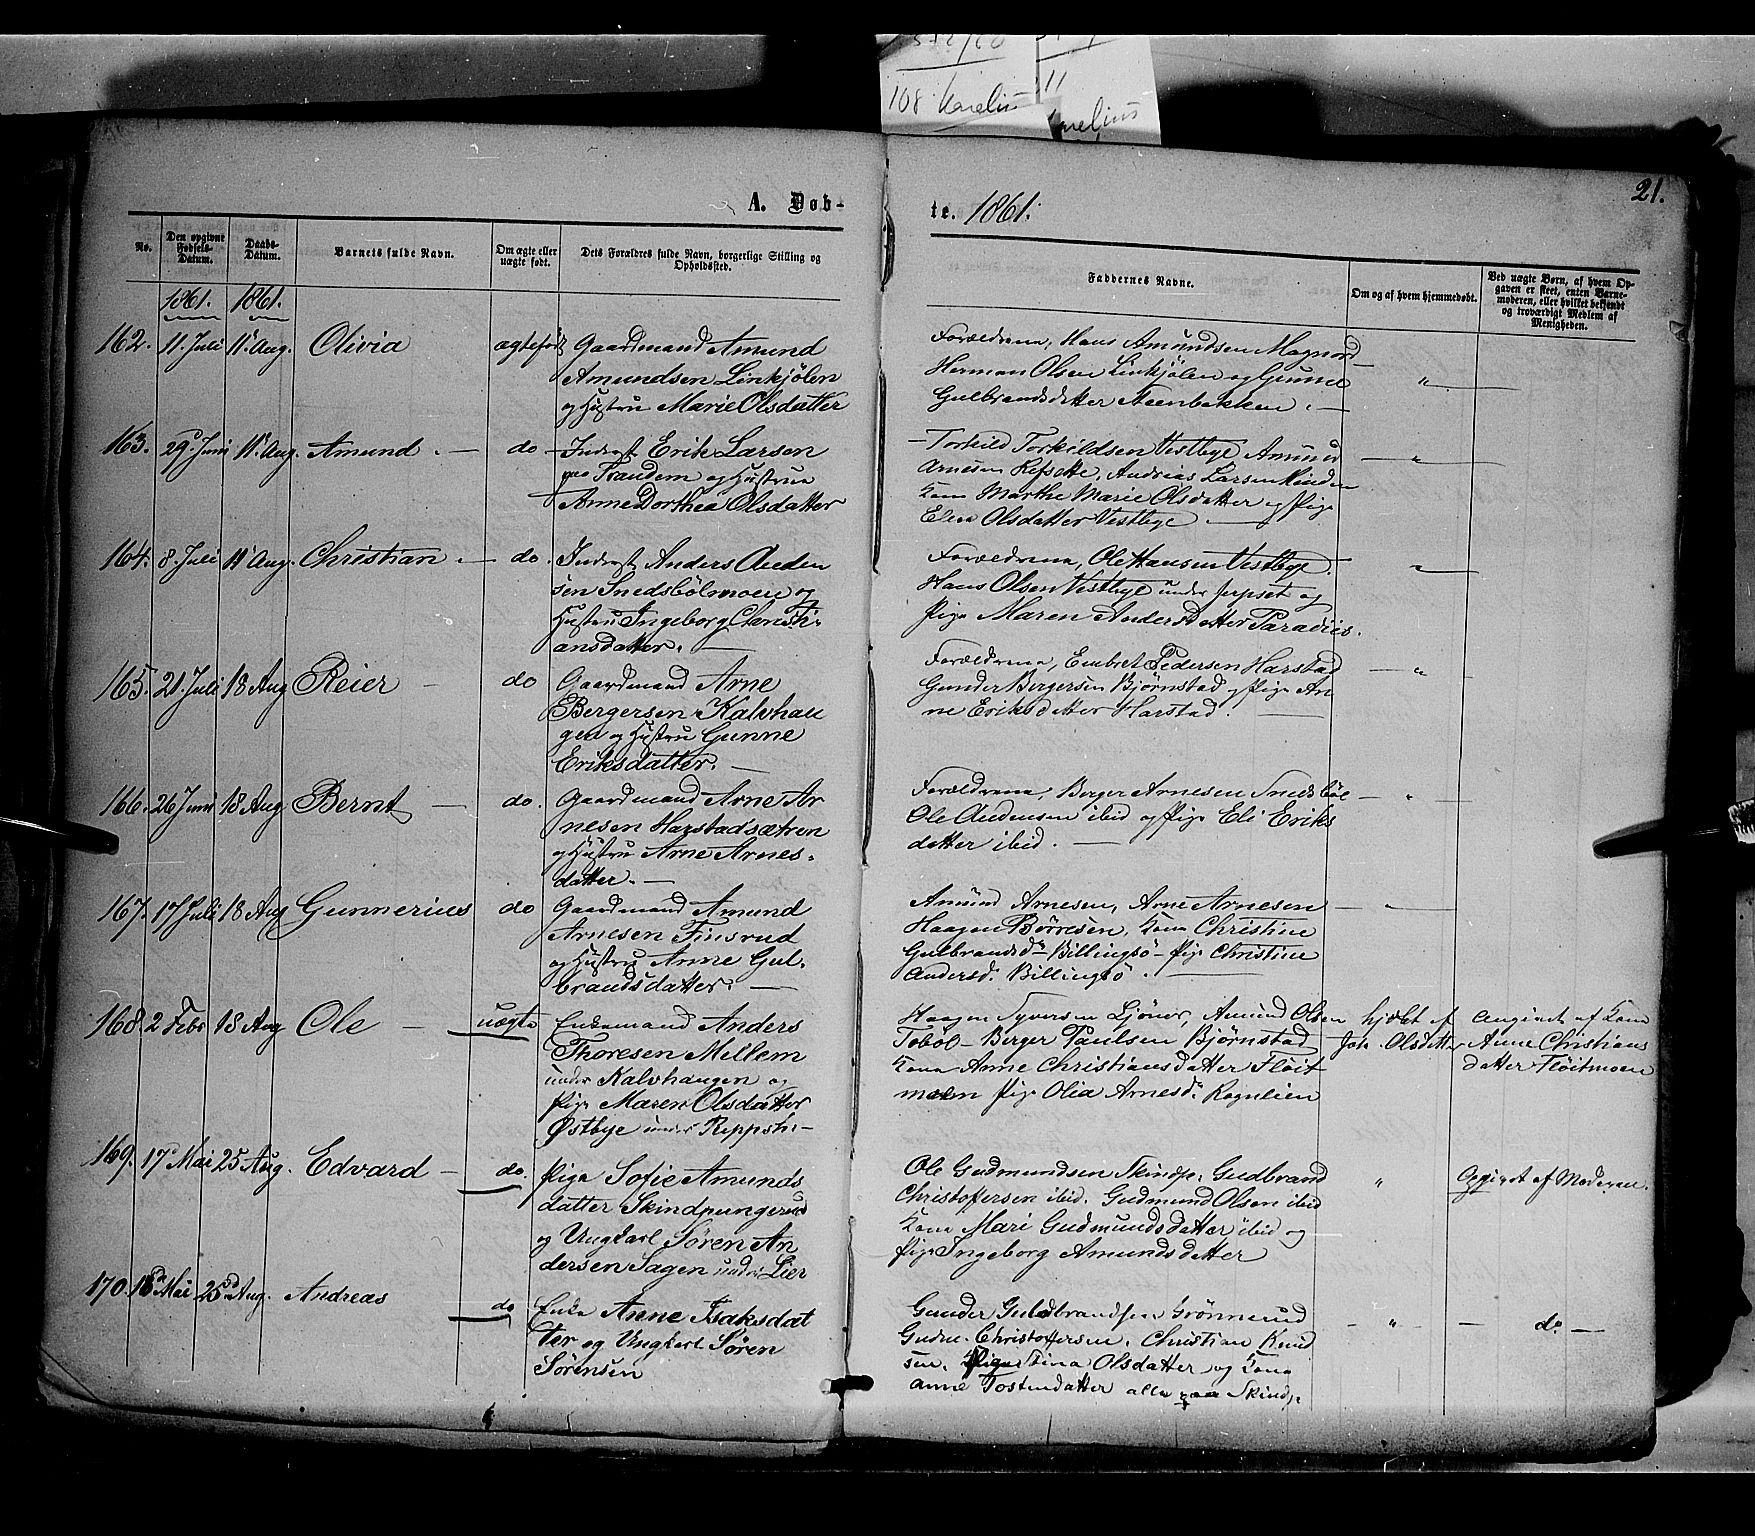 108 Karelius 11
Karelius
21.
A. Døb-
te. 1861.
No.
Den opgivne Fødsels-Datum.
Daabs-Datum.
Barnets fulde Navn.
Om ægte eller uægte født.
Dets Forældres fulde Navn, borgerlige Stilling og Opholdssted.
Faddernes Navne.
Om og af hvem hjemmedøbt.
Ved uægte Børn, af hvem Opgaven er skeet, enten Barnemoderen, eller hvilket bekjendt og troværdigt Medlem af Menigheden.
1861. 1861.
162. 11. Juli 11 Aug. Olivia ægtefødt Gaardmand Amund
Amundsen Linkjølen
og Hustru Marie Olsdatter
Forældrene, Hans Amundsen Magnord
Herman Olsen Linkjølen og Gunne
Gulbrandsdatter Steenbakken. —
"
163. 29. Juni 11 Aug. Amund. — do — Inderst Erik Larsen
paa Trandem og Hustru
Anne Dorthea Olsdatter
— Torkild Torkildsen Vestbye Amund
Arnesen Refsette, Andreas Larsen Linden
Kone Marthe Marie Olsdatter og Pige
Elen Olsdatter Vestbye. —
"
164. 8. Juli 11 Aug. Christian. — do. Inderst Anders Auden
sen Snedsbølmoen og
Hustru Ingeborg Christi-
ansdatter. —
Forældrene, Ole Hansen Vestbye.
Hans Olsen Vestbye under Jerpset og
Pige Maren Andersdatter Paradiis.
"
165. 21. Juli 18 Aug Reier — do Gaardmand Arne
Bergersen Kalvhau
gen og Hustru Gunne
Eriksdatter. —
Forældrene, Embret Pedersen Harstad
Gunder Bergersen Bjørnstad og Pige An
ne Eriksdatter Harstad. —
"
166. 26 Juni 18 Aug Bernt — do. Gaardmand Arne Ar
nesen Harstadsætren
og Hustru Arne Arnes-
datter. —
Forældrene, Berger Arnesen Snedsbøl
Ole Audensen ibid og Pige Eli Eriks
datter ibid. —
"
167. 17 Juli 18 Aug Gunnerius do Gaardmand Amund
Arnesen Finsrud
og Hustru Anne Gul-
brandsdatter. —
Amund Arnesen, Arne Arnesen
Haagen Børresen, Kone Christine
Gulbrandsd. Billingsø — Pige Christine
Andersd. Billingsø. —
"
168. 2 Febr 18 Aug Ole — uægte Enkemand Anders
Thoresen Mellem
under Kalvhaugen og
Pige Maren Olsdatter
Østbye under Reppsti —
Haagen Syversen Ljøner, Amund Olsen
Tobøl — Berger Paulsen Bjørnstad
Kone Anne Christiansdatter Fløit
moen Pige Olia Arnesd. Rognlien
hjdøbt af
Joh. Olsdatter
Angivet af Kone
Anne Christians
datter Fløitmoen
169. 17 Mai 25 Aug. Edvard — do. Pige Sofie Amunds
datter Skindpungerud
og Ungkarl Søren An
dersen Sagen under Lier
Ole Gudmundsen Skindp. Gudbrand
Christoffersen ibid. Gudmund Olsen ibid
Kone Mari Gudmundsdatter ibid og
Pige Ingeborg Amundsdatter
"
Opgivet af Moderen.
170. 16de Mai 25de Aug. Andreas do Enke Anne Isaksdat
ter og Ungkarl Søren
Sørensen
Gunder Guldbrandsen Grønnerud
Gudm. Christoffersen. Christian Knud
sen. Pige Stina Olsdatter og Kone
Anne Tostensdatter alle paa Skindp.
— " — do —